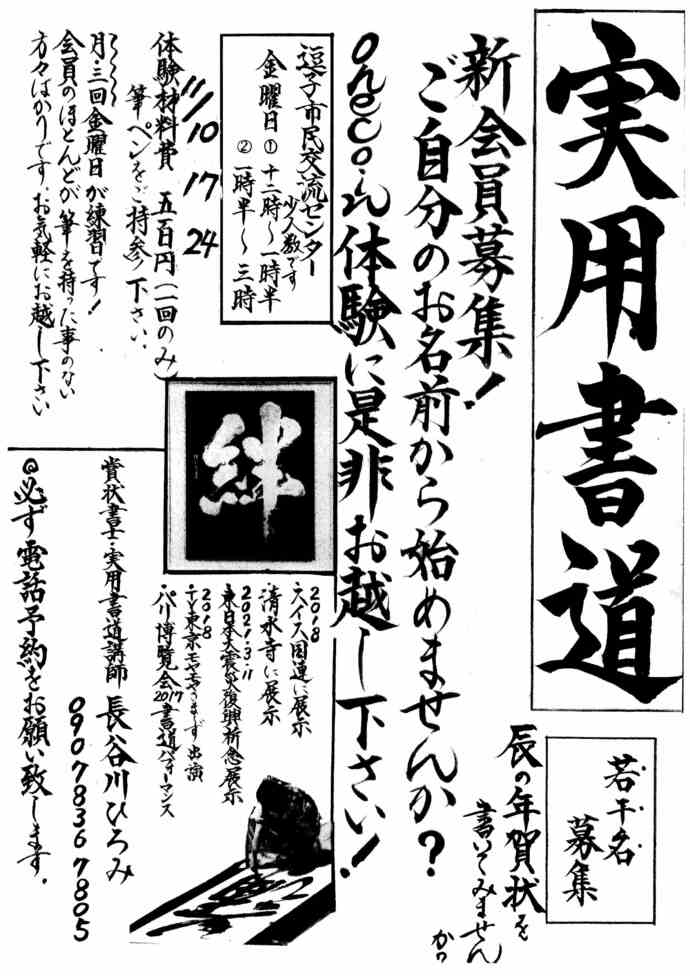 実用書道
若干名
募集
辰の年賀状を
書いてみません
か?
新会員募集!
ご自分のお名前から始めませんか?
onecoin体験に是非お越し下さい!
逗子市民交流センター
少人数です
金曜日①十二時~一時半
②一時半~三時
11/10 17 24
体験材料費 五百円(一回のみ)
筆ペンをご持参下さい。
月・三回金曜日が練習です!
会員のほとんどが筆を持った事のない
方々ばかりです。お気軽にお越し下さい
絆
2018
・スイス国連に展示
・清水寺に展示
2021.3.11
東日本大震災復興祈念展示
2018
・テレ東京モヤモヤさまぁず出演
・パリ博覧会2017書道パフォーマンス
賞状書士・実用書道講師 長谷川ひろみ
090 7836 7805
◎必ず電話予約をお願い致します。